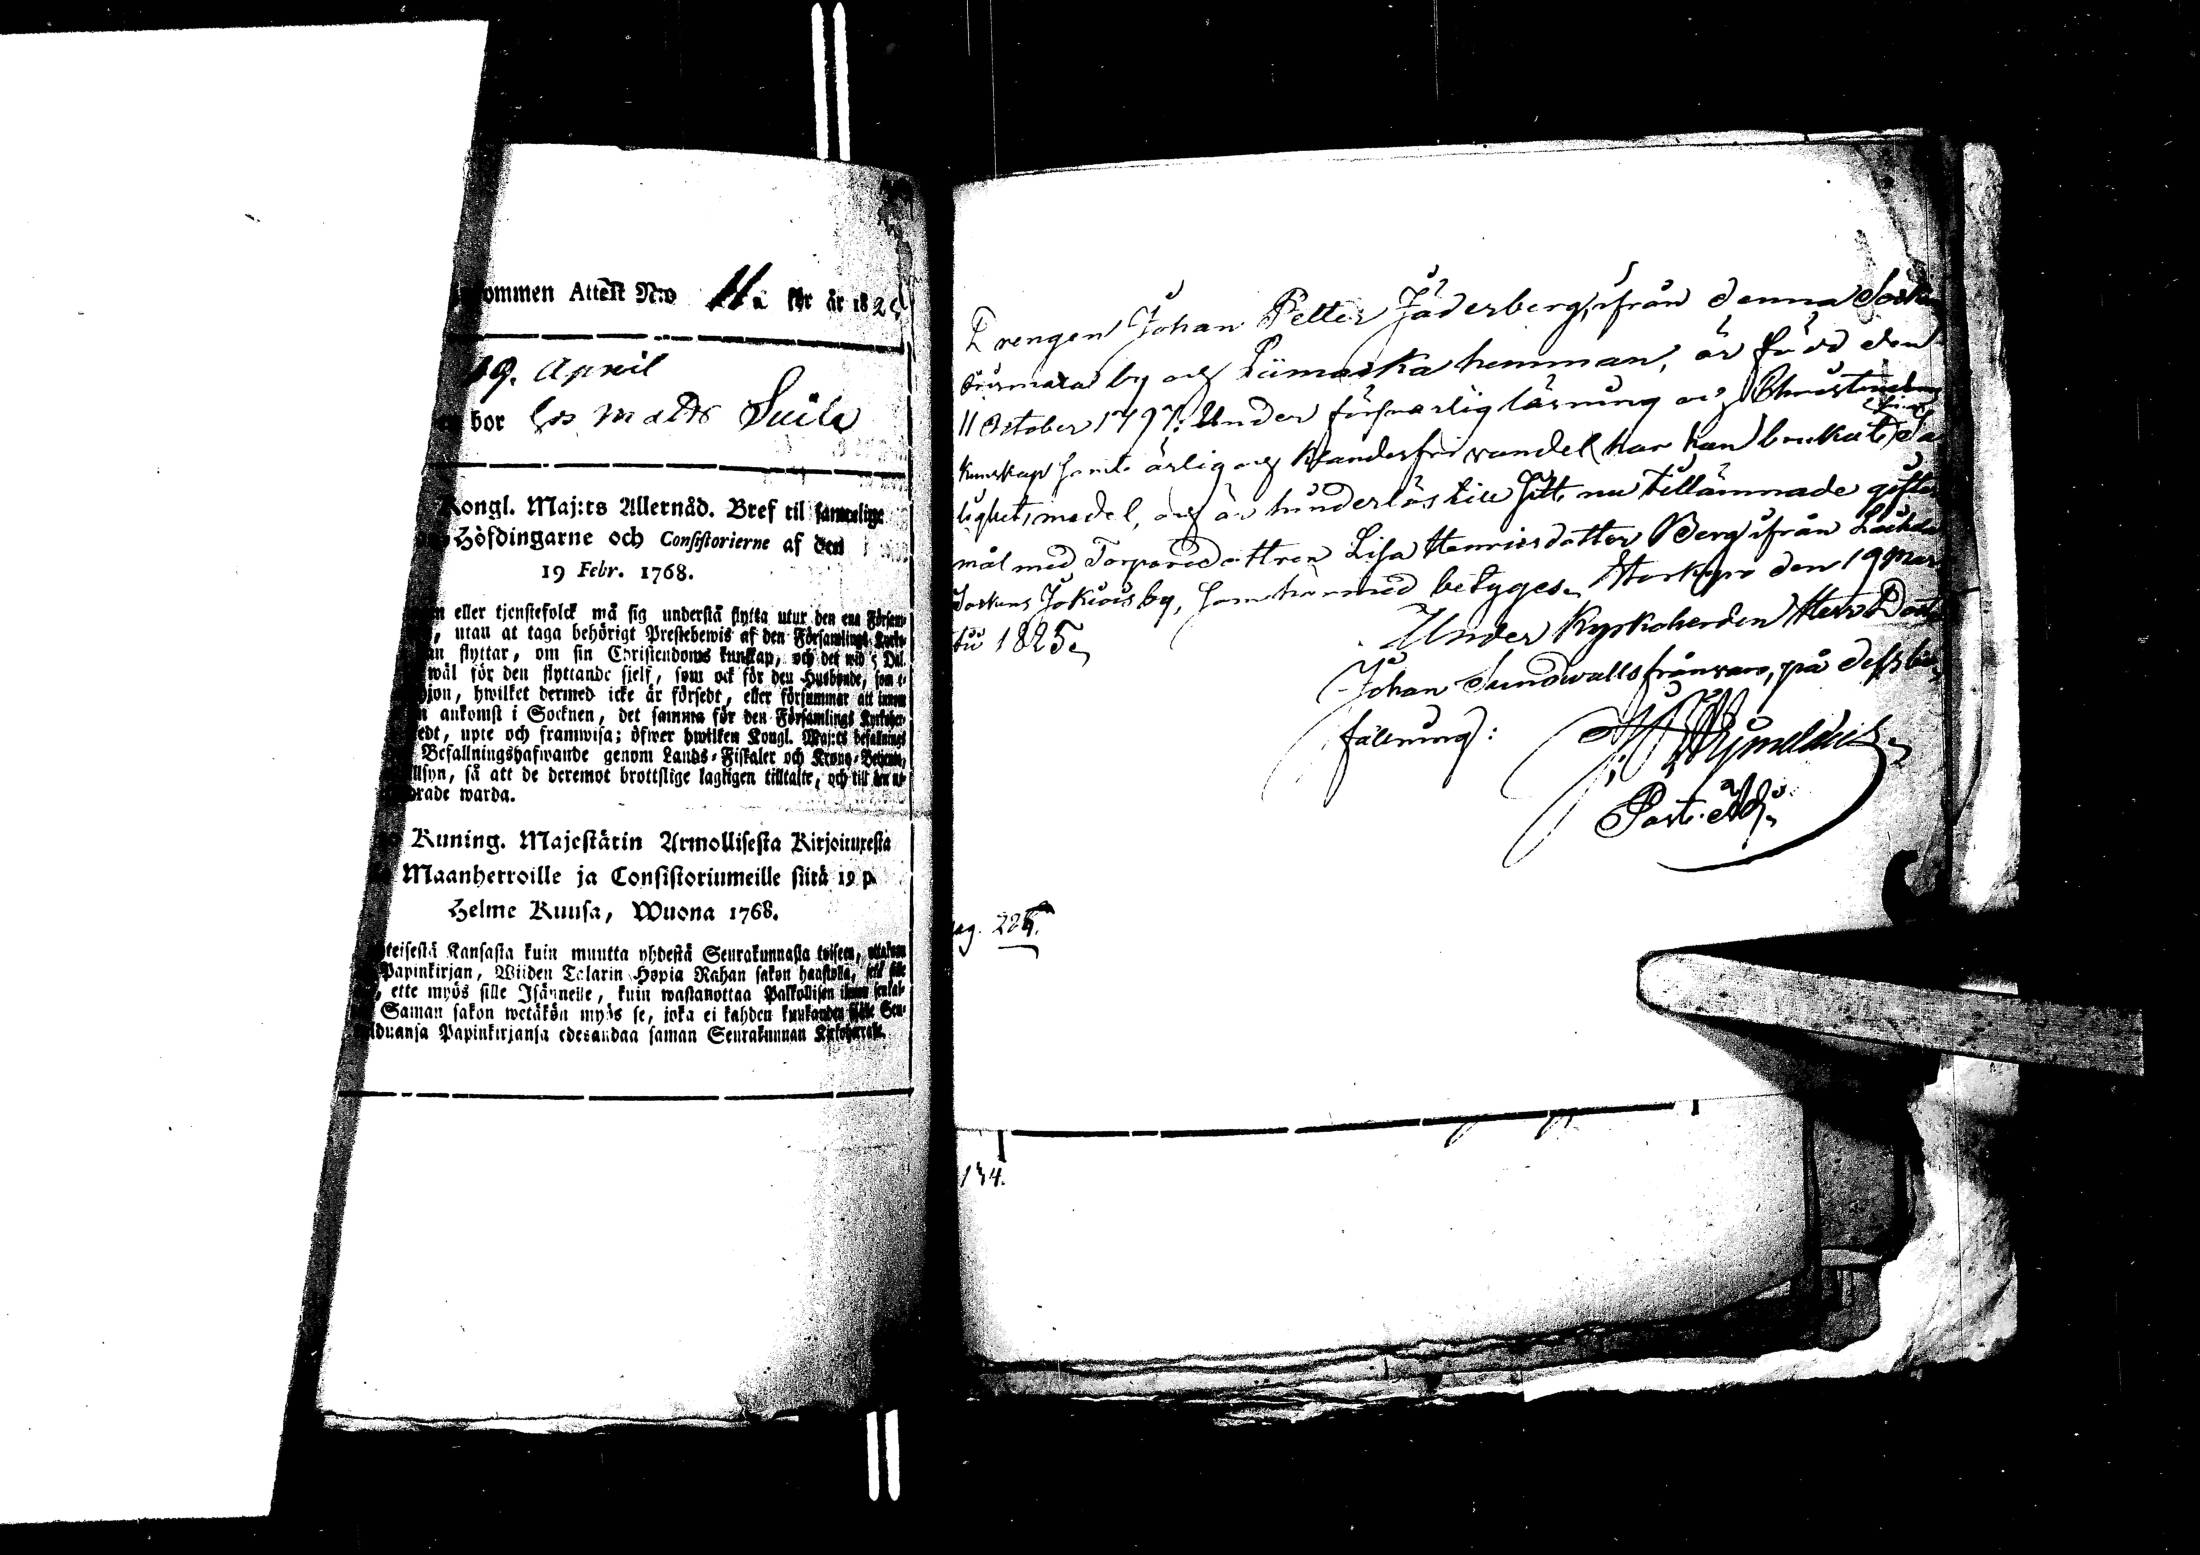 ommen Attest N:o 11. för år 182
19. April
bor hos Matts Suila
Kongl. Maj:ts Allernåd. Bref til samtelige
Höfdingarne och Consistorierne af den
19 Febr. 1768.
eller tjenstefolck må sig understå flytta utur den ena Försam-
, utan at taga behörigt Prestebewis af den Församlings Kyrko-
an flyttar, om sin Christendoms kunskap, och det wid 5 Dal.
wäl för den flyttande sjelf, som ock för den Husbonde, som e-
hjon, hwilket dermed icke är försedt, eller försummar att innom
ankomst i Socknen, det samma för den Församlings Kyrkoher-
edt, upte och framwisa; öfwer hwilken Kongl. Maj:ts befallnings
Befallningshafwande genom Lands-Fiskaler och Krono-Betjente,
llsyn, så att de deremot brottslige lagligen tilltalte, och till
rade warda.
Kuning. Majestätin Armollisesta Kirjoituxesta
Maanherroille ja Consistoriumeille siitä 19 p.
Helme Kuusa, Wuona 1768.
teisestä Kansasta kuin muutta yhdestä Seurakunnasta toiseen,
Papinkirjan, Wiiden Talarin Hopia Rahan sakon haastolla,
, ette myös sille Isännelle, kuin wastanottaa Palkollisen
Saman sakon wetäkön myös se, joka ei kahden kuukauden
lduansa Papinkirjansa edesandaa saman Seurakunnan Kirkoherralle.
Drengen Johan Petter Jäderberg, ifrån denna Sockn
by och hemman, är född den
11 October 1797. Under försvarlig läsning och Christendoms
kunskap samt ärlig och klanderfri vandel har han brukat Sa
lighetsmedel, och är hinderlös till sitt nu tillämnade gifter
mål med Torparedottren Lisa Henricsdotter Berg ifrån
Sockens Jokiois by, som härmed betyges. Storkyro den 19 Mar
tii 1825.
Under Kyrkoherden Herr Doct
Johan Sundwalls frånvaro, på dess be
fallning:
Past. Adj.
ag. 225.
134.